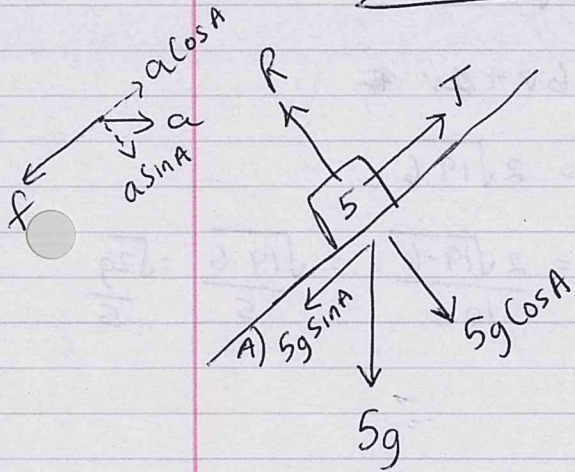 a cosA
a
a sinA
f
R
T
5
A)
5g sinA
5g cosA
5g